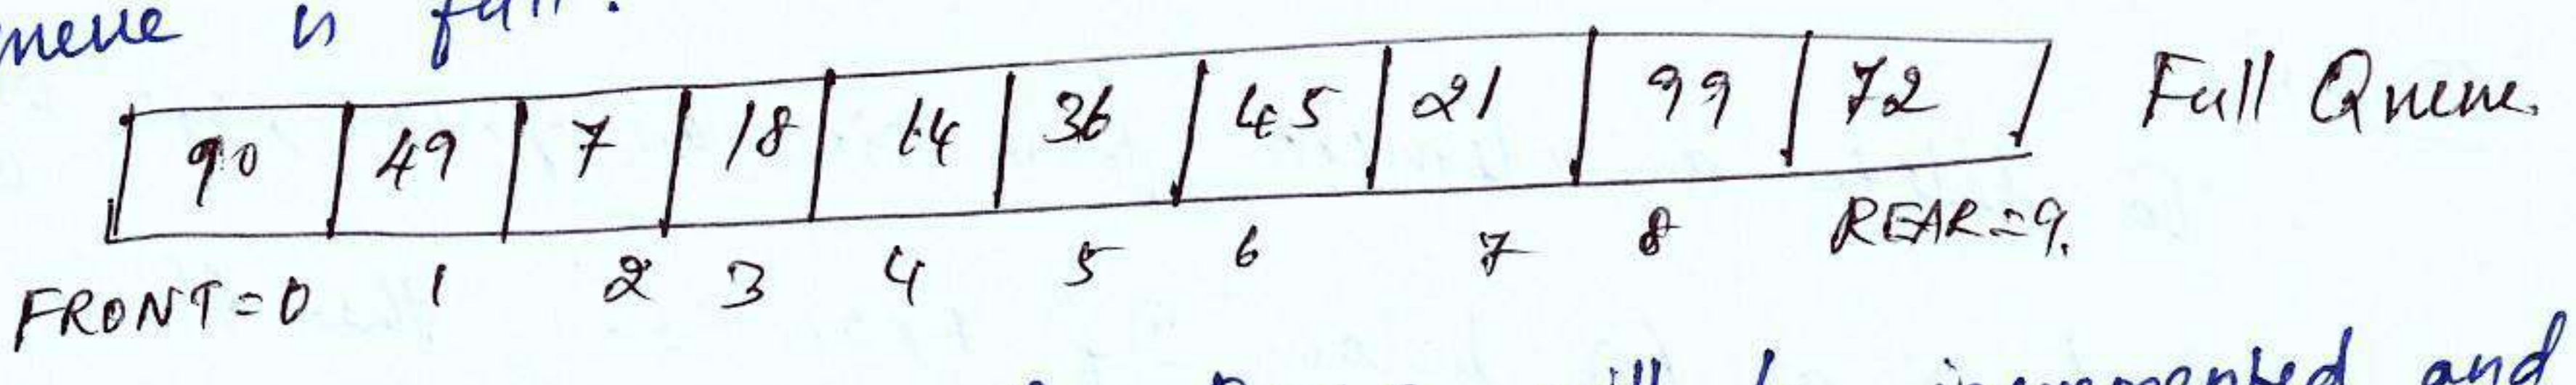 is full.
90 49 7 18 14 36 45 21 99 72 Full Queue.
FRONT=0 1 2 3 4 5 6 7 8 REAR=9.
incremented and